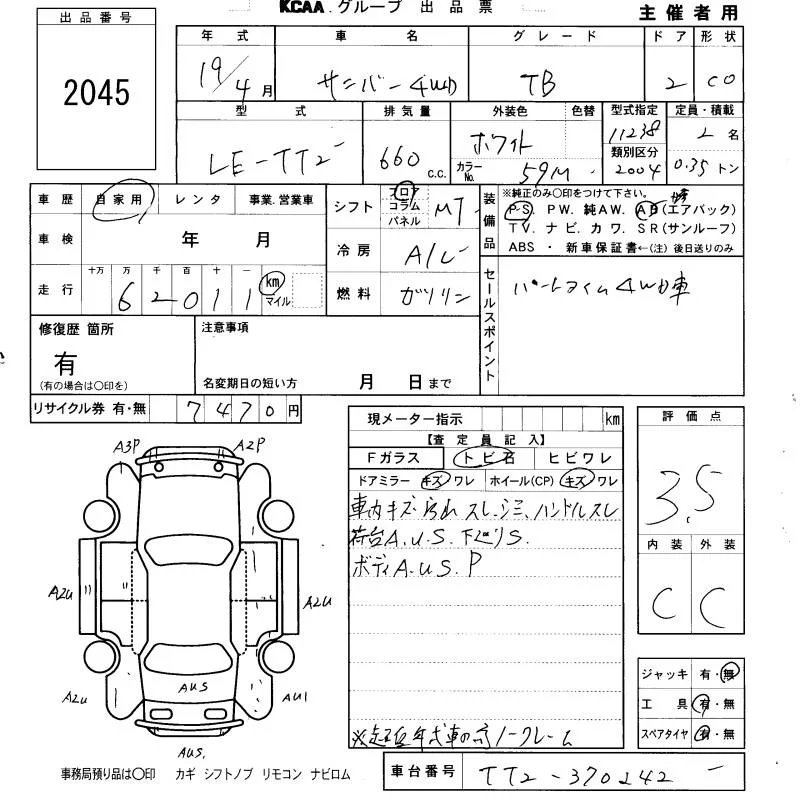 KCAA.グループ 出品票
主催者用
出品番号
2045
年式 車名 グレード ドア 形状
19/4月 サンバー4WD TB 2 CO
型式 排気量 外装色 色替 型式指定 定員・積載
LE-TT2 660 C.C. ホワイト カラーNo. 59M 11238 2名
類別区分
2004 0.35トン
車歴 自家用 レンタ 事業.営業車
車検 年 月
走行 十万 万 千 百 十 一
62011 km マイル
シフト フロア コラム パネル MT
冷房 A/C
燃料 ガソリン
装備品
※純正のみ〇印をつけて下さい。
P.S. PW. 純AW. AB(エアバック)
TV. ナビ. カワ. SR(サンルーフ)
ABS ・ 新車保証書←(注)後日送りのみ
セールスポイント
パートタイム4WD車
修復歴 箇所
有
(有の場合は〇印を)
注意事項
名変期日の短い方 月 日まで
リサイクル券 有・無 7470円
現メーター指示 km
【査定員記入】
Fガラス トビ石 ヒビワレ
ドアミラー キズ ワレ ホイール(CP) キズ ワレ
車内キズ・汚れ スレ.シミ、ハンドルスレ
荷台A.U.S.下廻りS.
ボディA.U.S.P
評価点
3.5
内装 外装
C C
A3P A2P
A2U A2U
A2U AUS AU1
AUS.
ジャッキ 有・無
工具 有・無
スペアタイヤ 有・無
ノークレーム
事務局預り品は〇印 カギ シフトノブ リモコン ナビロム
車台番号 TT2-370242